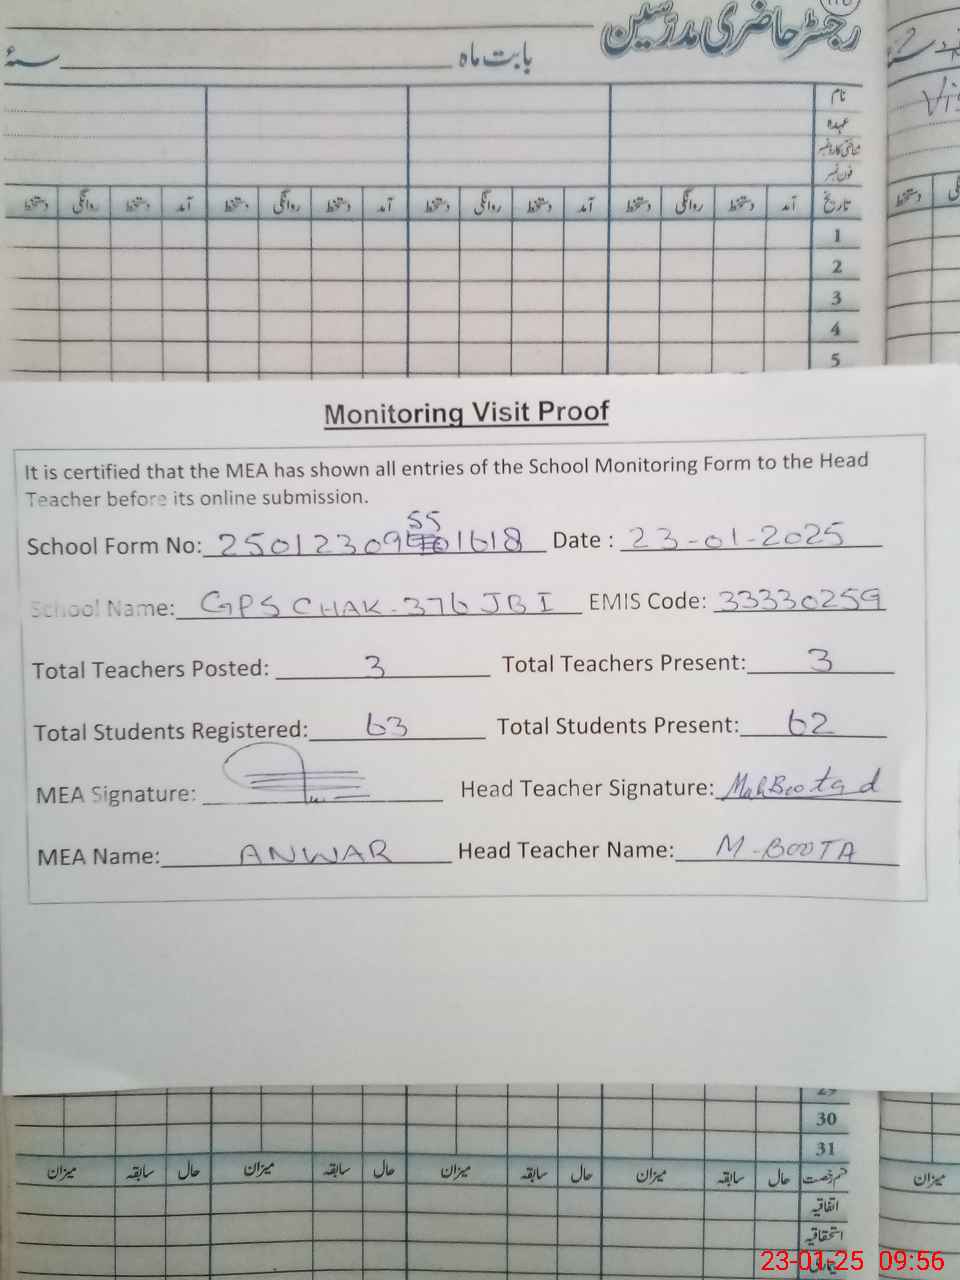 رجسٹر حاضری مدرسین
بابت ماہ ____ سنۂ
نام
عہدہ
فون نمبر
تاریخ آمد دستخط روانگی دستخط آمد دستخط روانگی دستخط آمد دستخط روانگی دستخط آمد دستخط روانگی دستخط
1
2
3
4
5
Monitoring Visit Proof
It is certified that the MEA has shown all entries of the School Monitoring Form to the Head
Teacher before its online submission.
School Form No: 25012309551618 Date : 23-01-2025
School Name: GPS CHAK-376 JB I EMIS Code: 33330259
Total Teachers Posted: 3 Total Teachers Present: 3
Total Students Registered: 63 Total Students Present: 62
MEA Signature: Head Teacher Signature:
MEA Name: ANWAR Head Teacher Name: M-BOOTA
29
30
31
حال سابقہ میزان حال سابقہ میزان حال سابقہ میزان حال سابقہ میزان
میزان
اتفاقیہ
استحقاقیہ
بیماری
23-01-25 09:56